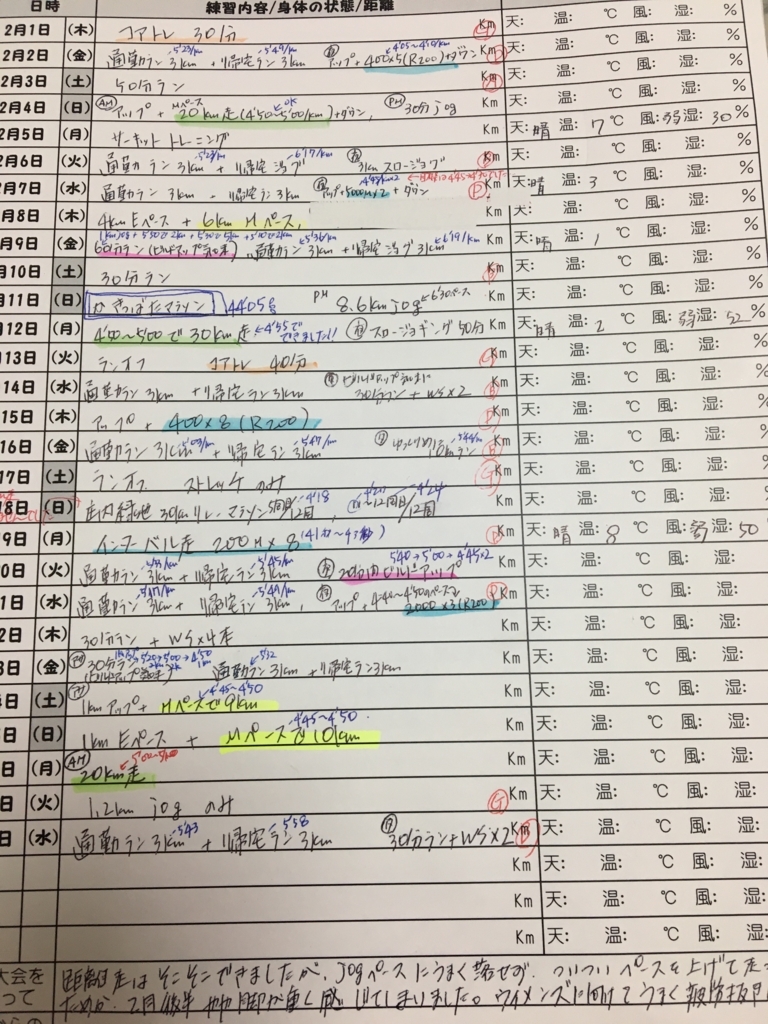 日時 練習内容/身体の状態/距離
2月1日 (木) コアトレ 30分 Km 天: 温: ℃ 風: 湿: %
2月2日 (金) 通勤ラン 3km + 帰宅ラン 3km アップ+400×5(R200)+ダウン Km 天: 温: ℃ 風: 湿: %
2月3日 (土) 50分ラン Km 天: 温: ℃ 風: 湿: %
2月4日 (日) AM アップ + Mペース 20km走(4'50~5'00/km)+ダウン, PM 30分jog Km 天: 温: ℃ 風: 湿: %
2月5日 (月) サーキットトレーニング Km 天:晴 温:7℃ 風:弱 湿:30%
2月6日 (火) 通勤ラン 3km + 帰宅ジョグ 6'17/km 3km スロージョグ Km 天: 温: ℃ 風: 湿: %
2月7日 (水) 通勤ラン 3km + 帰宅ラン 3km アップ+5000M×2 + ダウン Km 天:晴 温:3 ℃ 風: 湿: %
2月8日 (木) 4km Eペース + 6km Mペース, Km 天: 温: ℃ 風: 湿: %
月9日 (金) 60分ラン(ビルドアップ気味), 通勤ラン 3km + 帰宅ジョグ 3km 6'19/km Km 天:晴 温:1 ℃ 風: 湿: %
月10日 (土) 30分ラン Km 天: 温: ℃ 風: 湿: %
月11日 (日) かきつばたマラソン 1:44'05 PM 8.6km jog 6'30ペース Km 天: 温: ℃ 風: 湿: %
月12日 (月) 4'50~5'00で30km走 4'55でできました!! スロージョギング50分 Km 天:晴 温:2 ℃ 風:弱 湿:52%
13日 (火) ランオフ コアトレ 40分 Km 天: 温: ℃ 風: 湿: %
14日 (水) 通勤ラン 3km + 帰宅ラン 3km ビルドアップ気味 30分ラン + WS×2 Km 天: 温: ℃ 風: 湿: %
15日 (木) アップ + 400×8(R200) Km 天: 温: ℃ 風: 湿: %
16日 (金) 通勤ラン 3km + 帰宅ラン 3km 5'47/km Km 天: 温: ℃ 風: 湿: %
17日 (土) ランオフ ストレッチのみ Km 天: 温: ℃ 風: 湿: %
18日 (日) 庄内緑地 30kmリレーマラソン 5周目/12周 4'18 ~12周目/12周 4'24 Km 天: 温: ℃ 風: 湿: %
9日 (月) インターバル走 200M×8(41秒~43秒) Km 天:晴 温:8 ℃ 風:弱 湿:50
0日 (火) 通勤ラン 3km + 帰宅ラン 3km 5'45/km 20分内ビルドアップ 5'40→5'00→4'45×2 Km 天: 温: ℃ 風: 湿:
1日 (水) 通勤ラン 3km + 帰宅ラン 3km, アップ+4'40~4'50のペースで 2000×3(R200) Km 天: 温: ℃ 風: 湿:
2日 (木) 30分ラン + WS×4本 Km 天: 温: ℃ 風: 湿:
3日 (金) 30分ラン(ビルドアップ気味) 通勤ラン 3km + 帰宅ラン 3km 5'12 Km 天: 温: ℃ 風: 湿:
日 (土) 1kmアップ + Mペースで9km 4'45~4'50 Km 天: 温: ℃ 風: 湿:
日 (日) 1km Eペース + Mペースで10km 4'45~4'50 Km 天: 温: ℃ 風: 湿:
日 (月) AM 20km走 Km 天: 温: ℃ 風: 湿:
日 (火) 1.2km jog のみ Km 天: 温: ℃ 風: 湿:
日 (水) 通勤ラン 3km 5'43 + 帰宅ラン 3km 5'58 30分ラン+WS×2 Km 天: 温: ℃ 風: 湿:
Km 天: 温: ℃ 風: 湿:
Km 天: 温: ℃ 風: 湿:
Km 天: 温: ℃ 風: 湿:
大会を 距離走はそこそこできましたが、jogペースにうまく落せず、ついついペースを上げて走っ
って ためか、2月後半やや脚が重く感じてしまいました。ウィメンズに向けてうまく疲労抜き